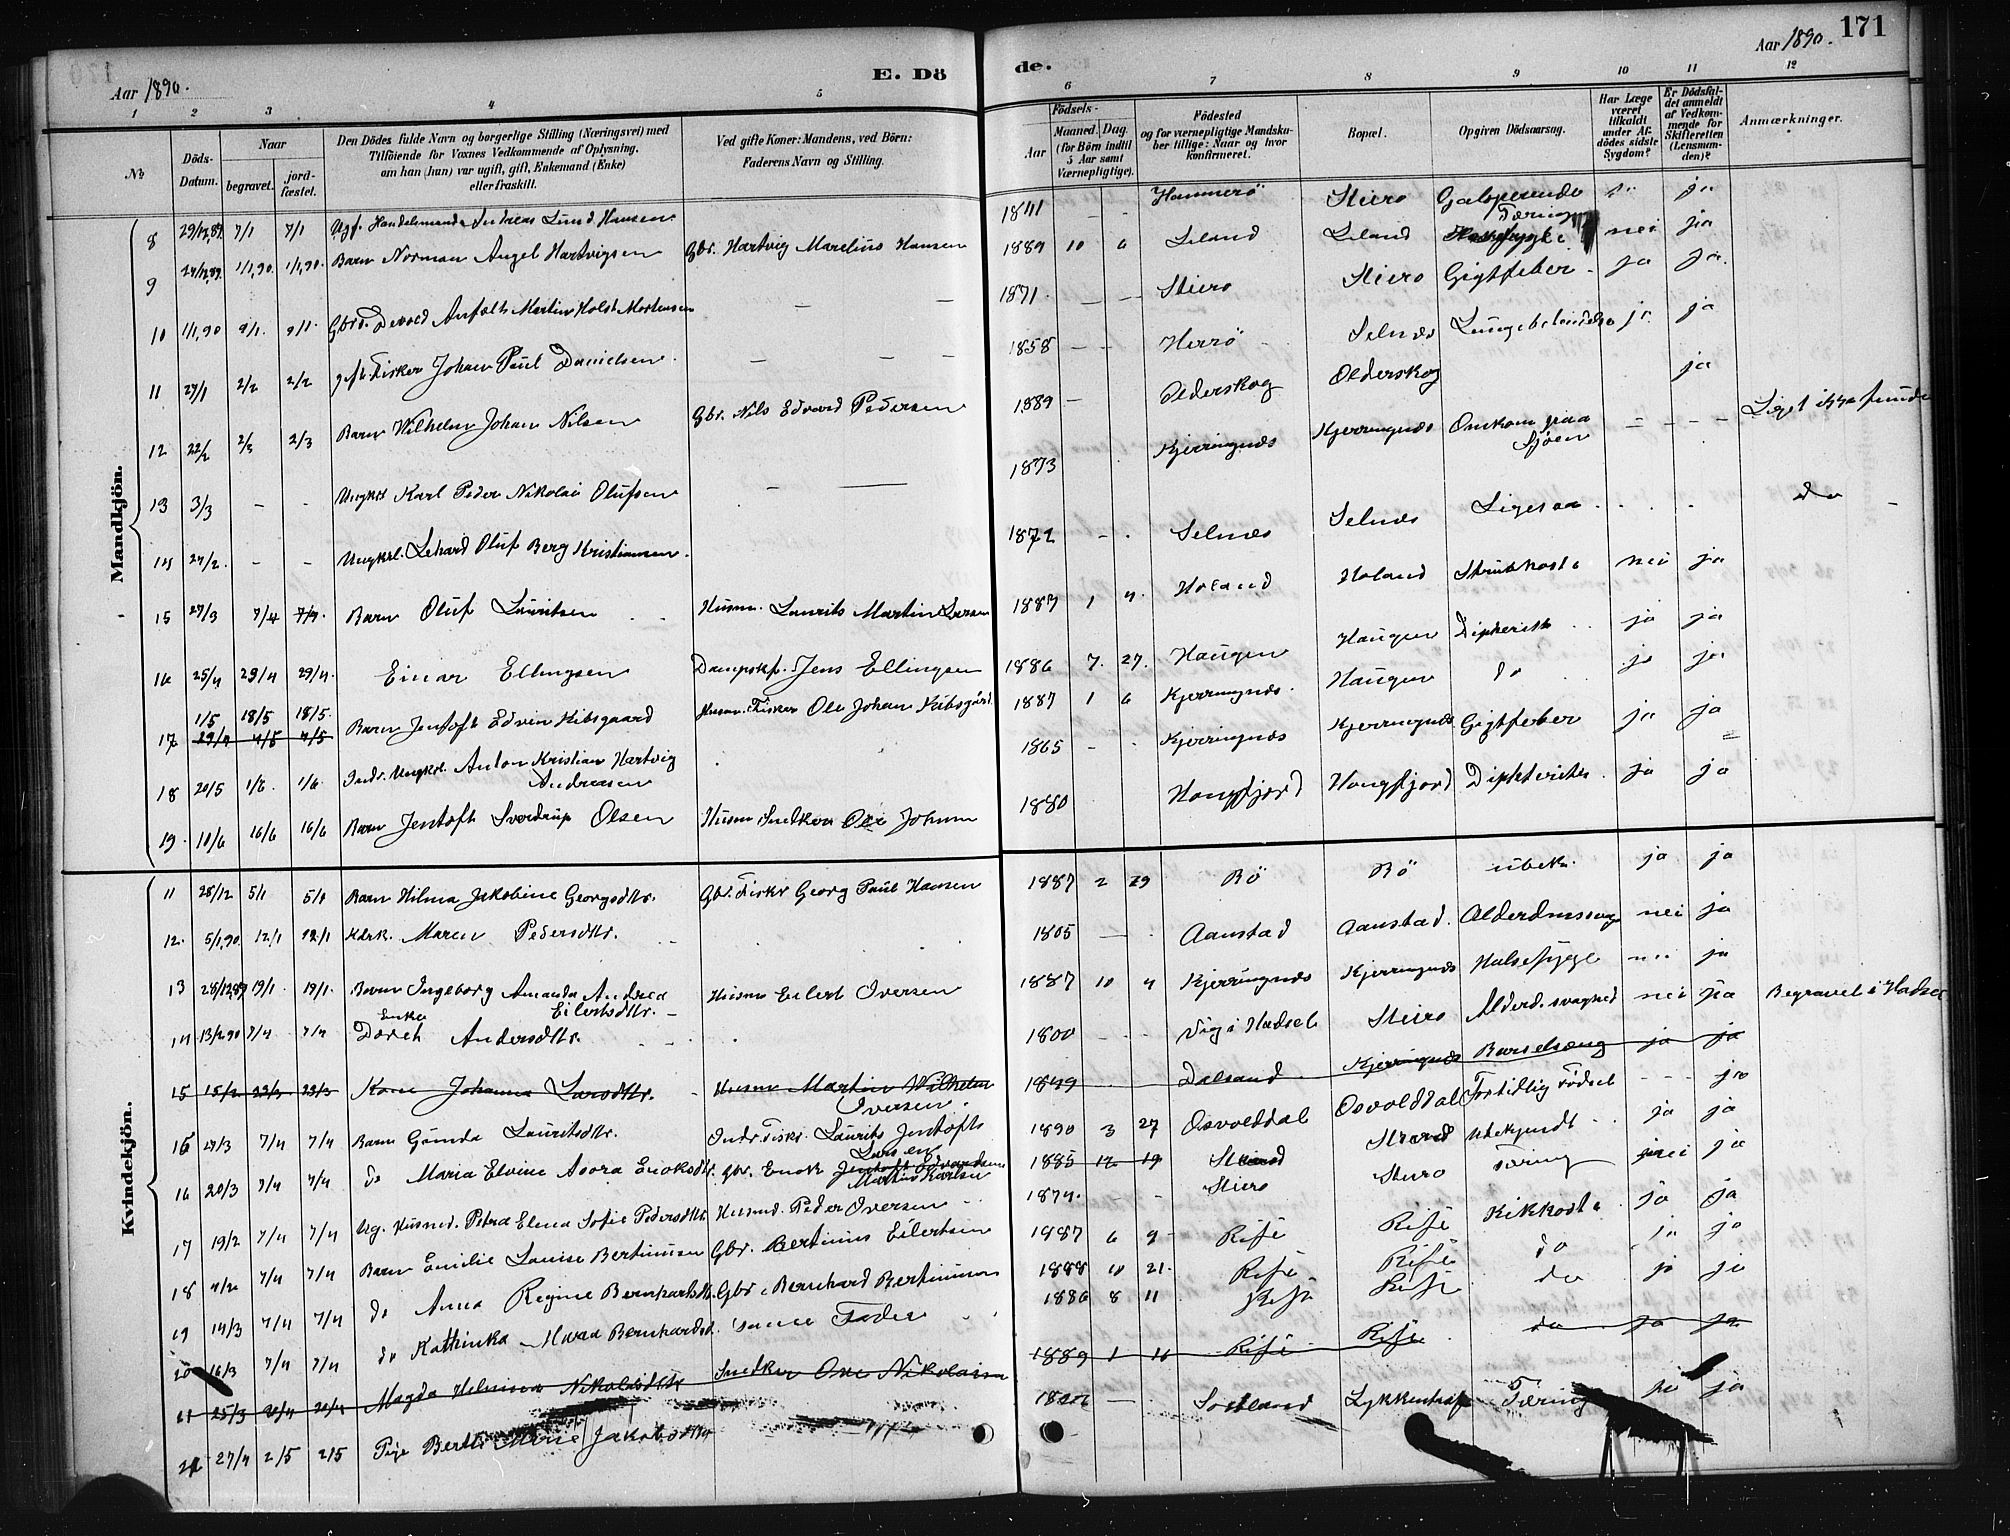 Aar 1890.
E. Dö
de.
Aar 1890.
171
1 2 3 4 5
6 7 8 9 10 11 12
No
Döds-Datum.
Naar
begravet.
jord-fæstet.
Den Dödes fulde Navn og borgerlige Stilling (Næringsvei) med
Tilföiende for Voxnes Vedkommende af Oplysning,
om han (hun) var ugift, gift, Enkemand (Enke)
eller fraskilt.
Ved gifte Koner: Mandens, ved Börn:
Faderens Navn og Stilling.
Födsels-
Aar
Maaned. Dag.
(for Börn indtil
5 Aar samt
Værnepligtige).
Födested
og for værnepligtige Mandska-
ber tillige: Naar og hvor
konfirmeret.
Bopæl.
Opgiven Dödsaarsag.
Har Læge
været
tilkaldt
under Af-
dödes sidste
Sygdom?
Er Dödsfal-
det anmeldt
af Vedkom-
mende for
Skifteretten
(Lensman-
den)?
Anmærkninger.
Mandkjön.
8 29/12,89 7/1 7/1 Ugf. Handelsmand Andreas Lund Hansen 1841 - - Hammerö Stiero Galoperende Tæring ja ja
9 24/12,89 1/1,90 1/1,90. Barn Norman Angel Hartvigsen Gbr. Hartvig Marelius Hansen 1889 10 6 Leland Leland nei ja
10 1/1,90 9/1. 9/1. Devold Anfeldt Martin Holst Mortensen - - 1871 - - Stiero Stiero Gigtfeber - ja ja.
11 27/1 2/2 2/2 gift Fisker Johan Paul Danielsen - - - 1858 - - Herrö Selnæs Lungebetændelse ja ja
12 22/2 2/3 2/3 Barn Wilhelm Johan Nilsen Gbr. Nils Edvard Pedersen 1889 - Olderskog Olderskog ja
13 3/3 - - Ungkl Karl Peder Nikolai Olufsen - 1873 Kjerringnæs Kjerringnæs Omkom paa Sjøen - - - - Liget ikke funde
14 27/2. - - Ungkrl. Lehard Oluf Berg Kristiansen. 1872 - . Selnæs Selnæs Ligesaa . . . do -
15 27/3 7/4 7/4 Barn Oluf Lauritsen Husm. Laurits Martin Larsen 1887 1 4. Holand Holand Strubehoste nei ja
16 25/4 29/4 29/4. Einar Ellingsen Dampskf. Jens Ellingsen 1886 7. 27. Haugen Haugen Dipherith ja ja
17 1/5 18/5 18/5. 29/4 4/5 4/5 Barn Jentoft Edvin Kibsgaard Husm. Fisker Ole Johan Kibsgård 1887 1 6 Kjerringnæs. Haugen do ja ja
18 20/5 1/6. 1/6. Indr. Ungkrl. Anton Kristian Hartvig Andreasen 1865 - - Kjerringnæs Kjerringnæs Gigtfeber ja ja
19. 10/6 16/6 16/6 Barn Jentoft Sverdrup Olsen Husm Snedker Ole Johan 1880 Hongfjord Hongfjord Diphteritis. ja ja
Kvindekjön.
11 28/12 5/1 5/1 Barn Hilma Jakobine Georgsdtr. Gbr. Fiskr Georg Paul Hansen 1887 2 29 Bö Bö ubek. ja ja
12. 5/1,90 12/1 12/1 Maren Pedersdtr. 1805 - Aanstad Aanstad. Alderdmssvag nei ja
13 28/12,89 19/1. 19/1. Barn Ingeborg Amanda Andrea Eilertsdtr. - Husm Eilert Iversen 1887 10 4 Kjerringnæs Kjerringnæs Halsesyge nei ja
14 13/2,90 7/4 7/4 Enke Doreth Andersdtr. 1800 Vig i Hadsel Stiero Alderd. svaghed nei ja Begravet i Hadsel
15 15/2 23/3 23/3 Kone Johanna Larsdtr. Husm Martin Wilhelm Iversen. 1849 Dalsand Kjerringnæs Barselseng ja ja
16 29/3 7/4 7/4 Barn Gunda Lauritsdtr. Indr. Fiskr. Laurits Jentofts Larsen 1890 3 27 Osvolddal Osvolddal Fortidlig Födsel - - ja
16 20/3 7/4 7/4 do Maria Elvine Aoora Enoksdtr. Gbr. Enok Jentoft Edvardsen Martin Karlsen 1885 12 19 Strand Strand Ubekjendt . ja ja
17 19/2 7/4 7/4 Ug. Husmd. Petra Elena Sofie Pedersdtr Husmd. Peder Iversen 1874. - - Stiero Stiero Tæring nei ja
18 4/2 7/4 7/4 Barn Emilie Louise Bertinusen Gbr. Bertinus Eilertsen 1887 6 9 Rise Rise Kikhoste ja ja
19 14/3 7/4 7/4 do Anna Regine Bernhartsdtr. Gbr. Bernhard Bertinusen 1888 10 21. Rise Rise do ja ja
20 16/3 7/4 7/4 do Kathinka Maria Bernhardsd. samme Fader 1886 8 11 Rise Rise do ja ja
21 25/3 20/4 20/4 Magda Helmina Nikolaisdtr Snedker Ole Nikolaisen 1889 1 16 Rise Rise do ja ja
21 27/4 2/5 2/5 Pige Berthe Marie Jakobsdtr - Sortland Tæring ja ja